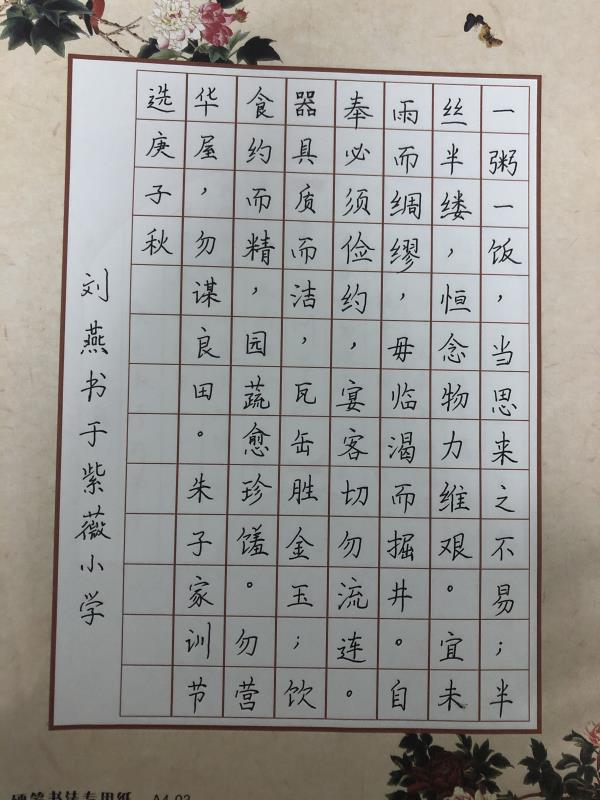 一粥一饭，当思来之不易；半
丝半缕，恒念物力维艰。宜未
雨而绸缪，毋临渴而掘井。自
奉必须俭约，宴客切勿流连。
器具质而洁，瓦缶胜金玉；饮
食约而精，园蔬愈珍馐。勿营
华屋，勿谋良田。朱子家训节
选庚子秋
刘燕书于紫薇小学
硬笔书法专用纸 A4-03